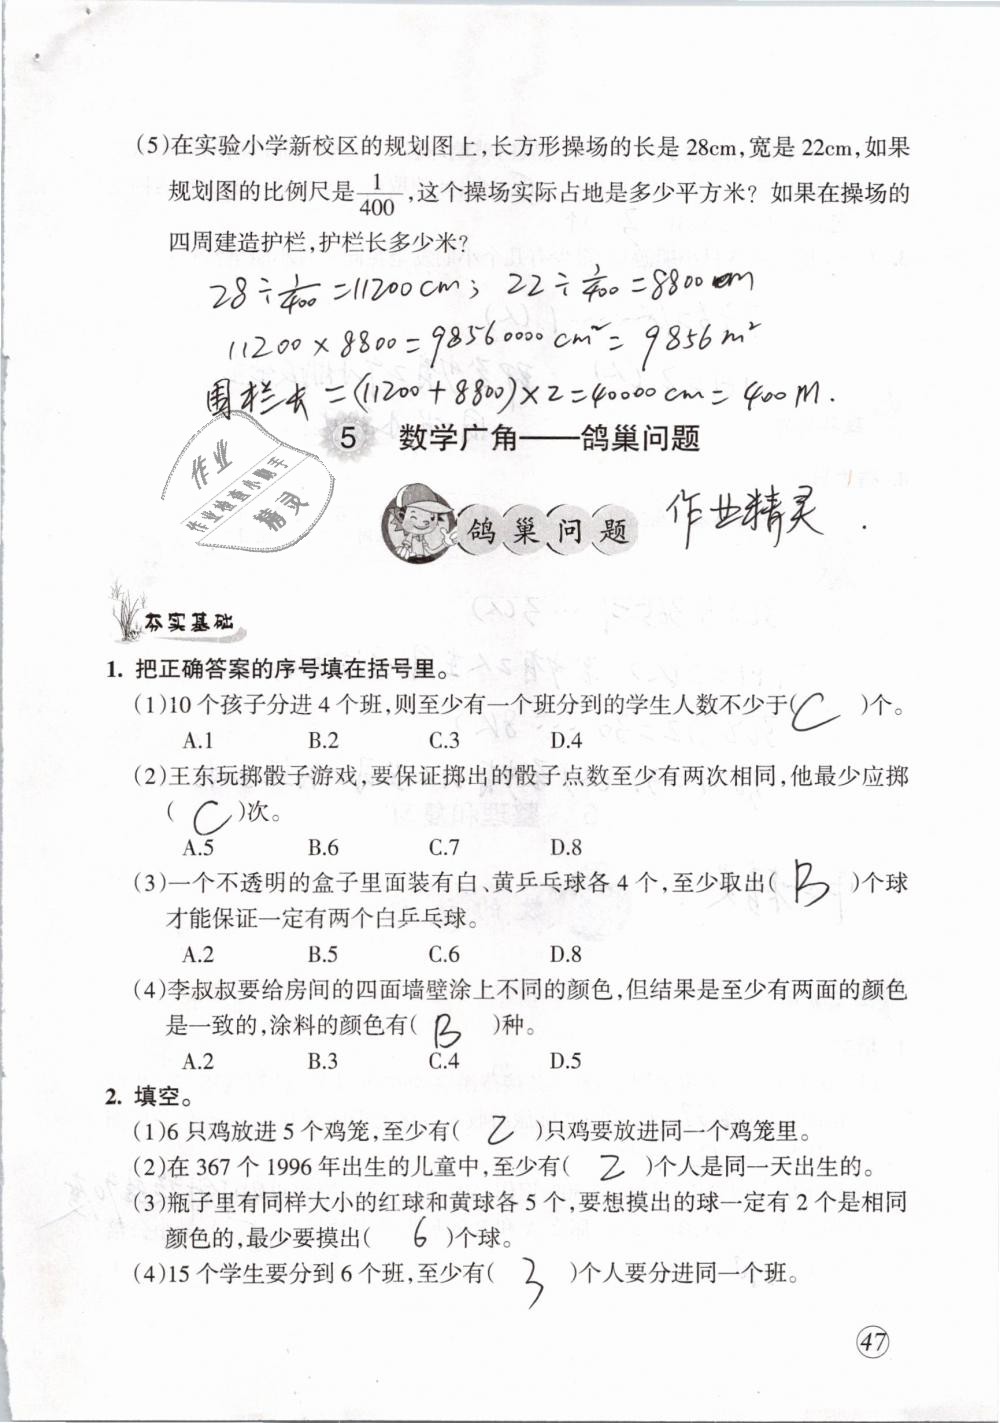 (5)在实验小学新校区的规划图上,长方形操场的长是 28cm,宽是 22cm,如果
规划图的比例尺是1/400,这个操场实际占地是多少平方米？如果在操场的
四周建造护栏,护栏长多少米？
28÷1/400=11200cm; 22÷1/400=8800cm
11200×8800=98560000cm²=9856m²
围栏长=(11200+8800)×2=40000cm=400M.
5 数学广角——鸽巢问题
作业
作业检查小助手
精灵
鸽巢问题
作业精灵.
夯实基础
1. 把正确答案的序号填在括号里。
(1)10 个孩子分进 4 个班,则至少有一个班分到的学生人数不少于( C )个。
A.1 B.2 C.3 D.4
(2)王东玩掷骰子游戏,要保证掷出的骰子点数至少有两次相同,他最少应掷
( C )次。
A.5 B.6 C.7 D.8
(3)一个不透明的盒子里面装有白、黄乒乓球各 4 个,至少取出( B )个球
才能保证一定有两个白乒乓球。
A.2 B.5 C.6 D.8
(4)李叔叔要给房间的四面墙壁涂上不同的颜色,但结果是至少有两面的颜色
是一致的,涂料的颜色有( B )种。
A.2 B.3 C.4 D.5
2. 填空。
(1)6 只鸡放进 5 个鸡笼,至少有( 2 )只鸡要放进同一个鸡笼里。
(2)在 367 个 1996 年出生的儿童中,至少有( 2 )个人是同一天出生的。
(3)瓶子里有同样大小的红球和黄球各 5 个,要想摸出的球一定有 2 个是相同
颜色的,最少要摸出( 6 )个球。
(4)15 个学生要分到 6 个班,至少有( 3 )个人要分进同一个班。
47